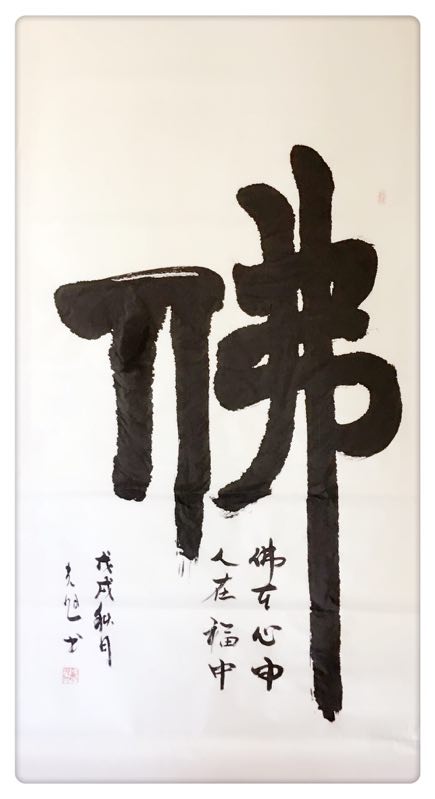 佛
佛在心中
人在福中
戊戌秋月
书